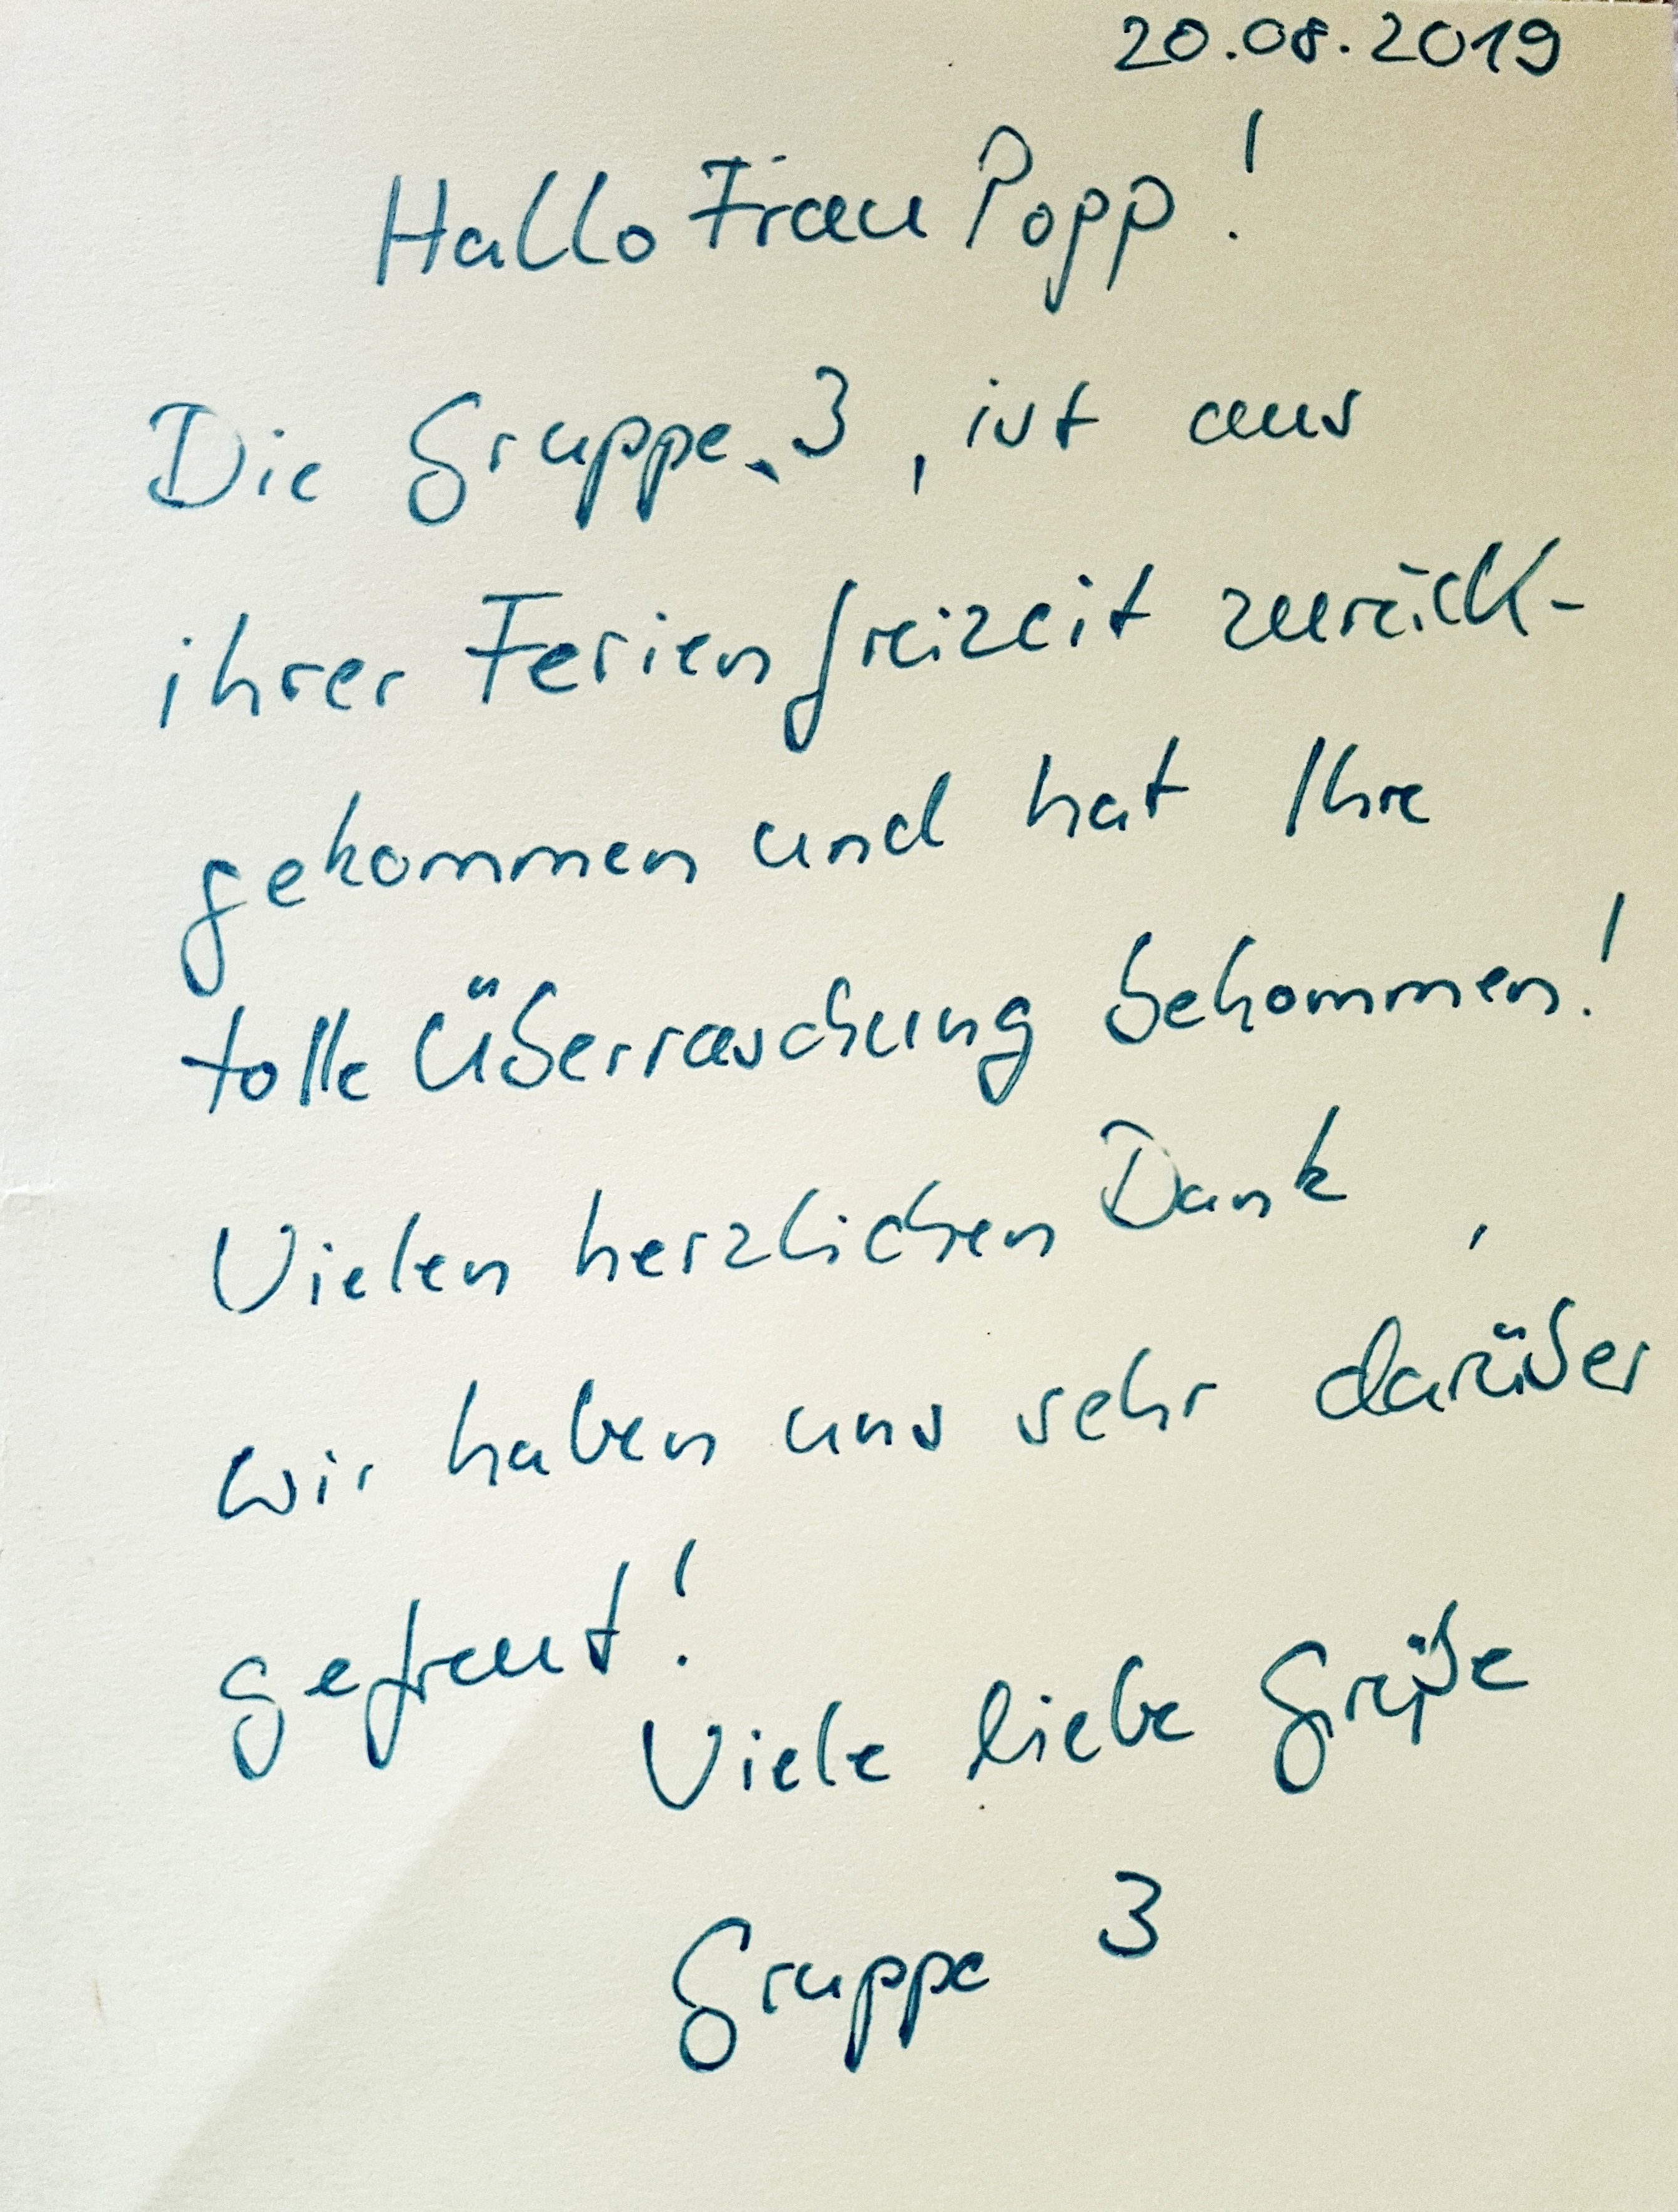 20.08.2019
Hallo Frau Popp!
Die Gruppe 3, ist aus
ihrer Ferienfreizeit zurück-
gekommen und hat Ihre
tolle Überraschung bekommen!
Vielen herzlichen Dank,
wir haben uns sehr darüber
gefreut!
Viele liebe Grüße
Gruppe 3